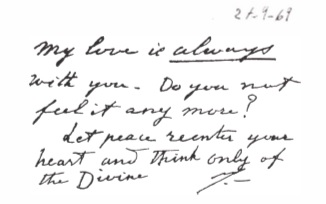 24-9-69
My love is always
with you. Do you not
feel it any more?
Let peace reenter your
heart and think only of
the Divine